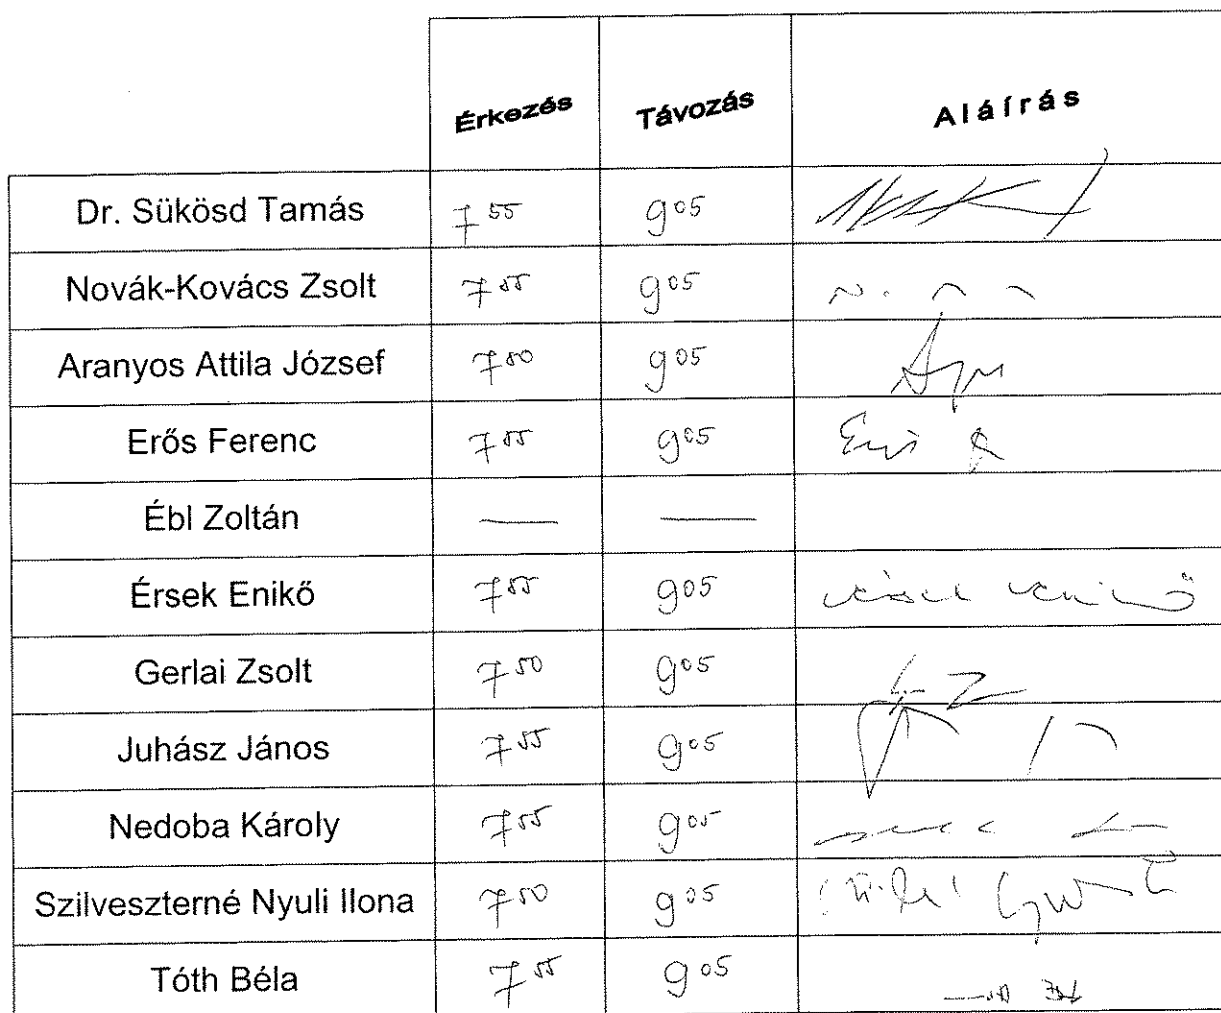 Érkezés Távozás Aláírás
Dr. Sükösd Tamás 7 55 9 05
Novák-Kovács Zsolt 7 55 9 05
Aranyos Attila József 7 50 9 05
Erős Ferenc 7 55 9 05 Erős F
Ébl Zoltán — —
Érsek Enikő 7 55 9 05 Érsek Enikő
Gerlai Zsolt 7 50 9 05 G Z
Juhász János 7 55 9 05
Nedoba Károly 7 55 9 05
Szilveszterné Nyuli Ilona 7 50 9 05
Tóth Béla 7 55 9 05